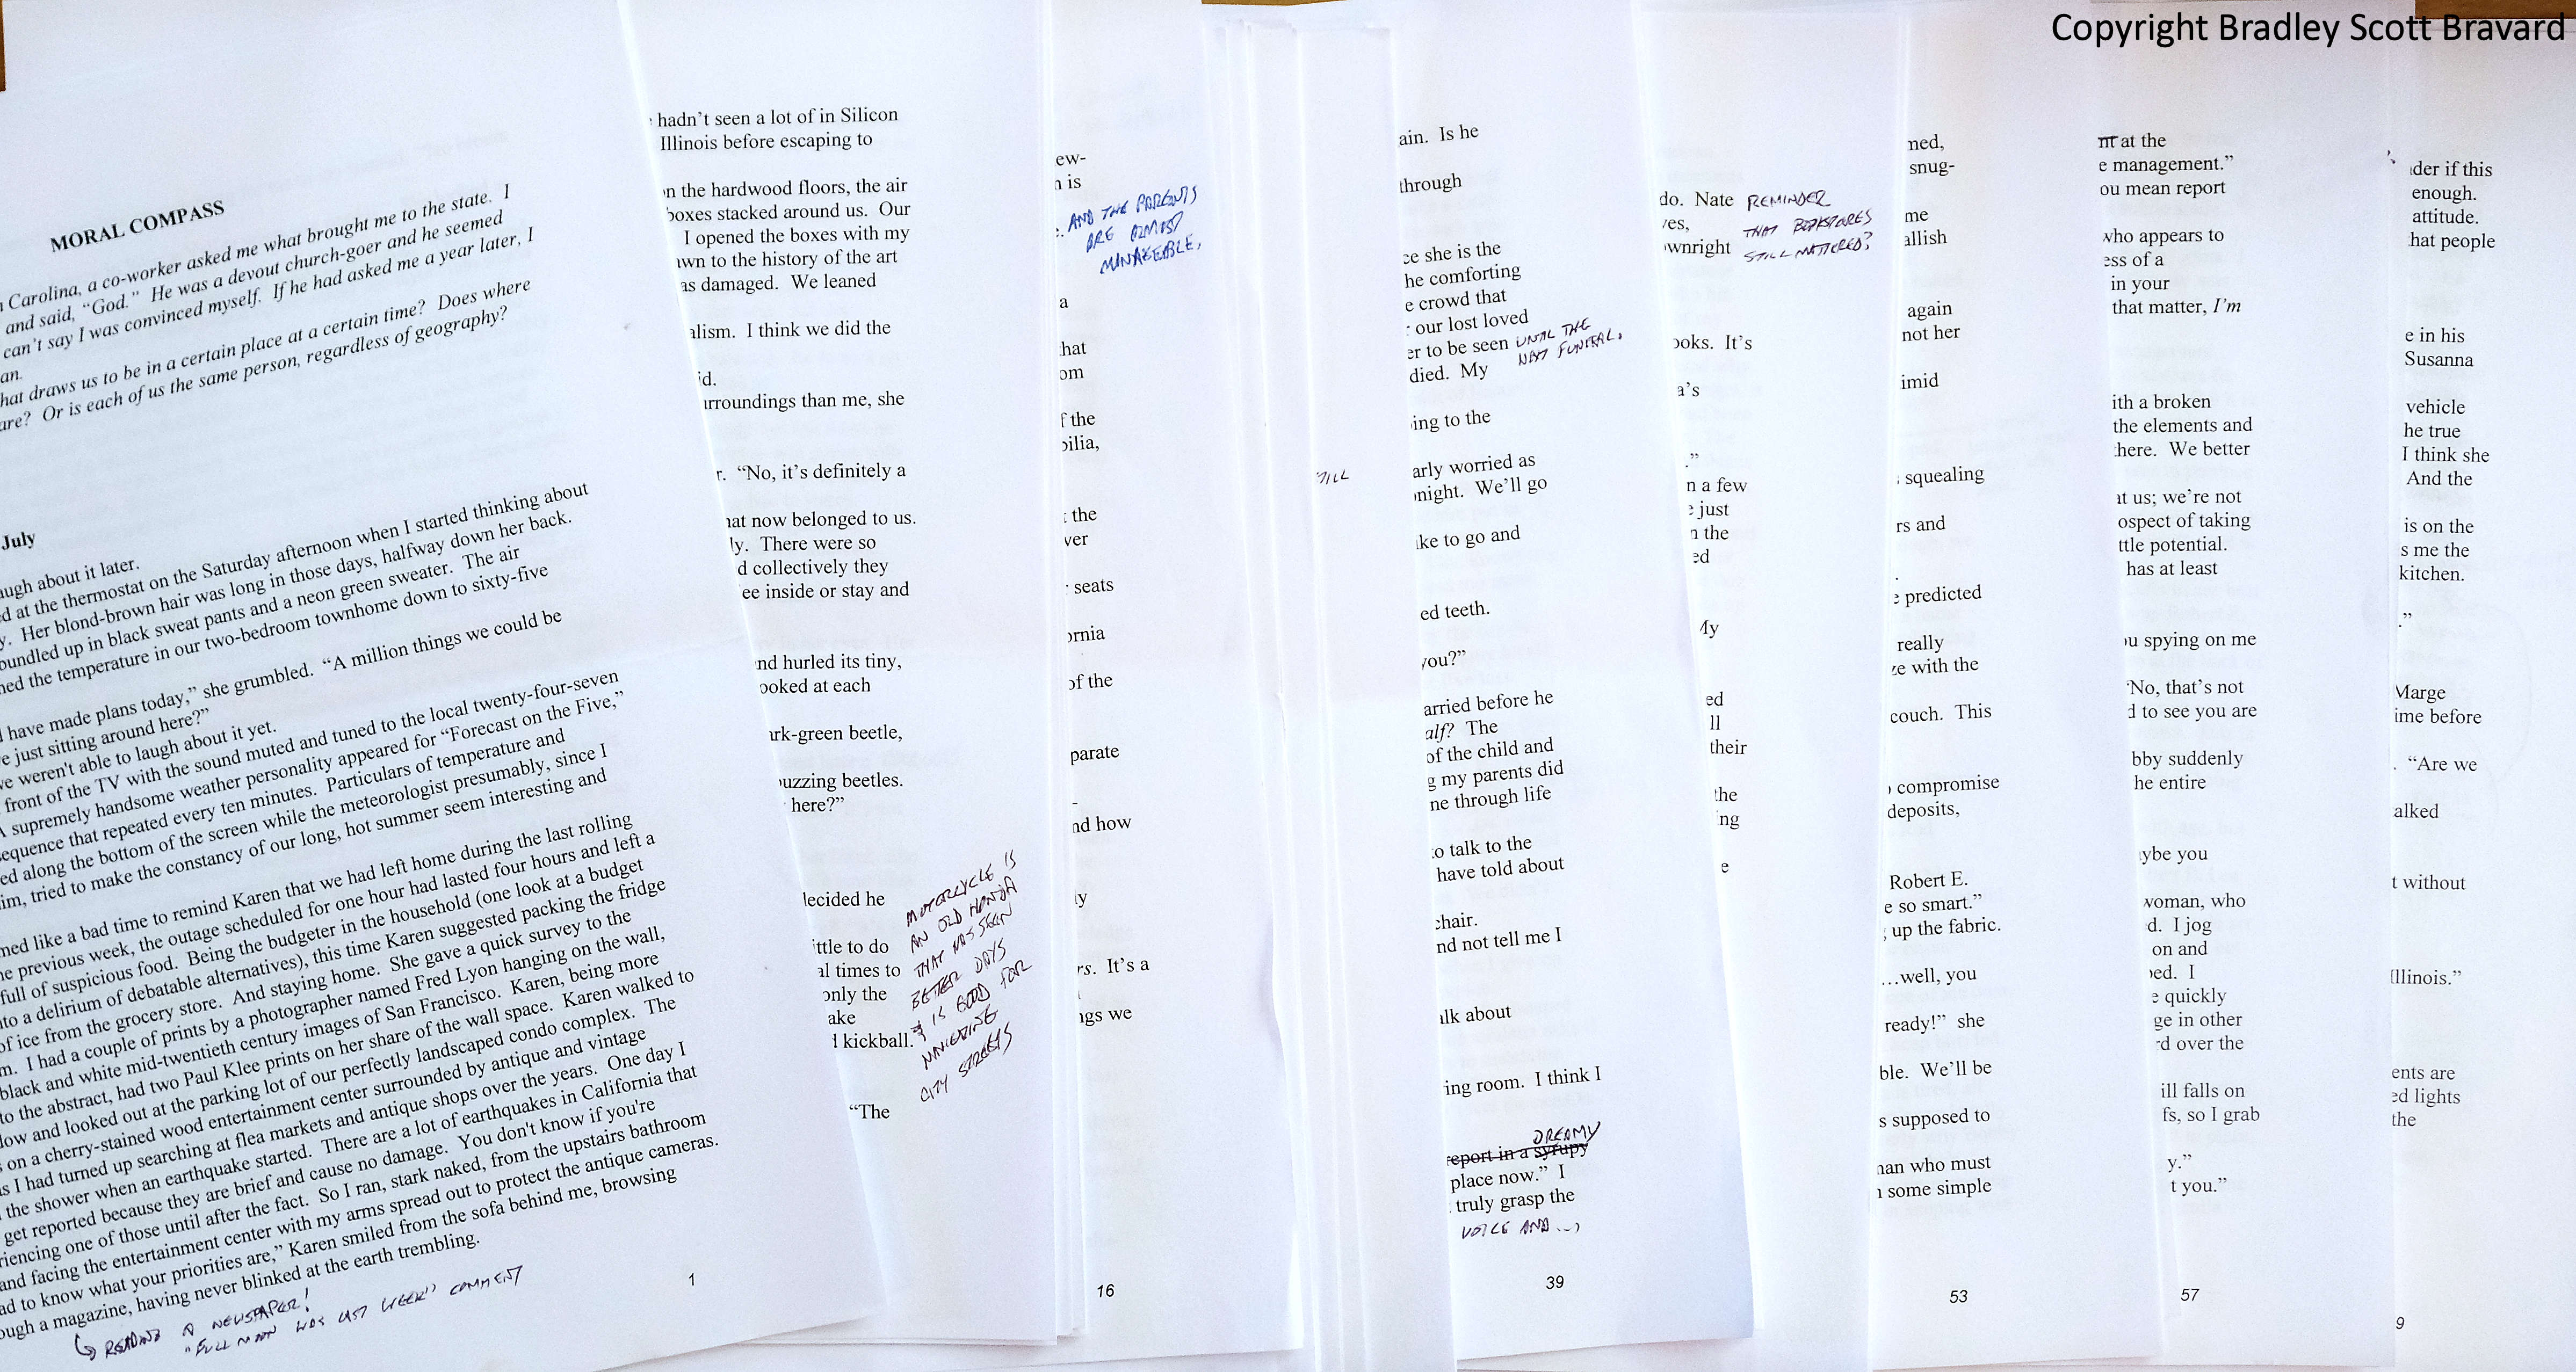 Copyright Bradley Scott Bravard
MORAL COMPASS
Carolina, a co-worker asked me what brought me to the state. I
and said, “God.” He was a devout church-goer and he seemed
can’t say I was convinced myself. If he had asked me a year later, I
an.
hat draws us to be in a certain place at a certain time? Does where
are? Or is each of us the same person, regardless of geography?
July
augh about it later.
ed at the thermostat on the Saturday afternoon when I started thinking about
y. Her blond-brown hair was long in those days, halfway down her back.
bundled up in black sweat pants and a neon green sweater. The air
ned the temperature in our two-bedroom townhome down to sixty-five
have made plans today,” she grumbled. “A million things we could be
e just sitting around here?”
ve weren't able to laugh about it yet.
front of the TV with the sound muted and tuned to the local twenty-four-seven
A supremely handsome weather personality appeared for “Forecast on the Five,”
sequence that repeated every ten minutes. Particulars of temperature and
ed along the bottom of the screen while the meteorologist presumably, since I
im, tried to make the constancy of our long, hot summer seem interesting and
med like a bad time to remind Karen that we had left home during the last rolling
he previous week, the outage scheduled for one hour had lasted four hours and left a
full of suspicious food. Being the budgeter in the household (one look at a budget
nto a delirium of debatable alternatives), this time Karen suggested packing the fridge
of ice from the grocery store. And staying home. She gave a quick survey to the
m. I had a couple of prints by a photographer named Fred Lyon hanging on the wall,
black and white mid-twentieth century images of San Francisco. Karen, being more
to the abstract, had two Paul Klee prints on her share of the wall space. Karen walked to
low and looked out at the parking lot of our perfectly landscaped condo complex. The
on a cherry-stained wood entertainment center surrounded by antique and vintage
s I had turned up searching at flea markets and antique shops over the years. One day I
the shower when an earthquake started. There are a lot of earthquakes in California that
get reported because they are brief and cause no damage. You don't know if you're
riencing one of those until after the fact. So I ran, stark naked, from the upstairs bathroom
and facing the entertainment center with my arms spread out to protect the antique cameras.
ad to know what your priorities are,” Karen smiled from the sofa behind me, browsing
ough a magazine, having never blinked at the earth trembling.
READING A NEWSPAPER!
“FULL MOON WAS LAST WEEK” COMMENT
1
hadn’t seen a lot of in Silicon
Illinois before escaping to
n the hardwood floors, the air
boxes stacked around us. Our
I opened the boxes with my
awn to the history of the art
as damaged. We leaned
alism. I think we did the
id.
urroundings than me, she
r. “No, it’s definitely a
hat now belonged to us.
ly. There were so
d collectively they
ee inside or stay and
nd hurled its tiny,
ooked at each
ark-green beetle,
uzzing beetles.
here?”
decided he
ittle to do
al times to
only the
ake
d kickball.
“The
MOTORCYCLE IS
AN OLD HONDA
THAT HAS SEEN
BETTER DAYS
& IS GOOD FOR
NAVIGATING
CITY STREETS
ew-
n is
AND THE PARENTS
ARE ALMOST
MANAGEABLE.
a
hat
om
f the
bilia,
t the
ver
seats
ornia
of the
parate
-
nd how
ly
rs. It’s a
ngs we
16
TILL
ain. Is he
through
ce she is the
he comforting
e crowd that
our lost loved
er to be seen UNTIL THE
NEXT FUNERAL.
died. My
ing to the
arly worried as
night. We’ll go
ike to go and
ed teeth.
you?”
arried before he
alf? The
of the child and
g my parents did
ne through life
to talk to the
have told about
chair.
nd not tell me I
alk about
ing room. I think I
DREAMY
report in a syrupy
place now.” I
truly grasp the
VOICE AND ...,
39
do. Nate REMINDER
ves, THAT BOOKSTORES
wnright STILL MATTERED?
ooks. It’s
a’s
.”
n a few
e just
n the
ed
My
ed
ll
their
the
ng
e
med,
snug-
me
allish
again
not her
imid
squealing
rs and
.
e predicted
really
ze with the
couch. This
compromise
deposits,
Robert E.
e so smart.”
up the fabric.
…well, you
ready!” she
ble. We’ll be
s supposed to
nan who must
n some simple
53
at the
e management.”
ou mean report
who appears to
ess of a
in your
that matter, I’m
ith a broken
the elements and
there. We better
at us; we’re not
ospect of taking
ttle potential.
has at least
ou spying on me
“No, that’s not
d to see you are
bby suddenly
he entire
aybe you
woman, who
d. I jog
on and
ped. I
e quickly
ge in other
rd over the
ill falls on
fs, so I grab
y.”
t you.”
57
der if this
enough.
attitude.
hat people
e in his
Susanna
vehicle
he true
I think she
And the
is on the
s me the
kitchen.
.”
Marge
ime before
. “Are we
alked
t without
Illinois.”
ents are
ed lights
the
9